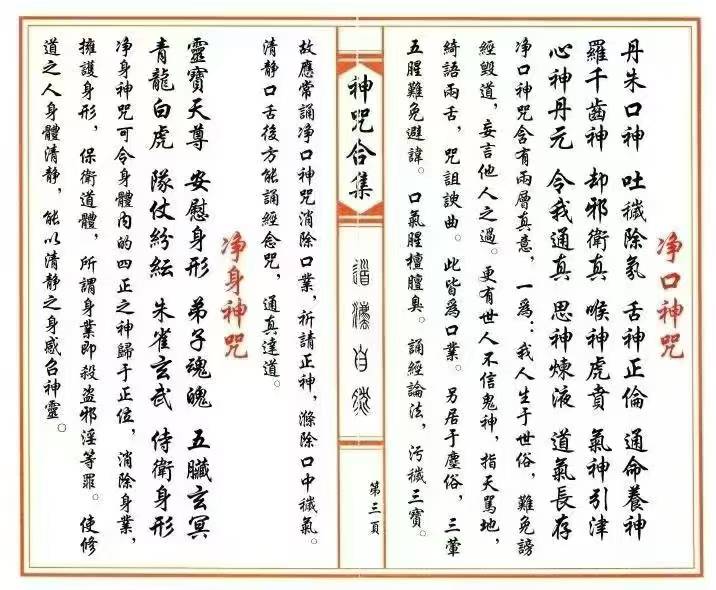 净口神咒
丹朱口神 吐穢除氛 舌神正倫 通命養神
羅千齒神 却邪衛真 喉神虎賁 氣神引津
心神丹元 令我通真 思神煉液 道氣長存
净口神咒含有兩層真意，一爲：我人生于世俗，難免謗
經毀道，妄言他人之過。更有世人不信鬼神，指天罵地，
綺語兩舌，咒詛諛曲。此皆爲口業。另居于塵俗，三葷
五腥難免避諱。口氣腥檀膻臭。誦經論法，污穢三寶。
神咒合集
道法自然
第三頁
故應常誦净口神咒消除口業，祈請正神，滌除口中穢氣。
清静口舌後方能誦經念咒，通真達道。
净身神咒
靈寶天尊 安慰身形 弟子魂魄 五臟玄冥
青龍白虎 隊仗紛紜 朱雀玄武 侍衛身形
净身神咒可令身體内的四正之神歸于正位，消除身業，
擁護身形，保衛道體，所謂身業即殺盗邪淫等罪。使修
道之人身體清静，能以清静之身感合神靈。